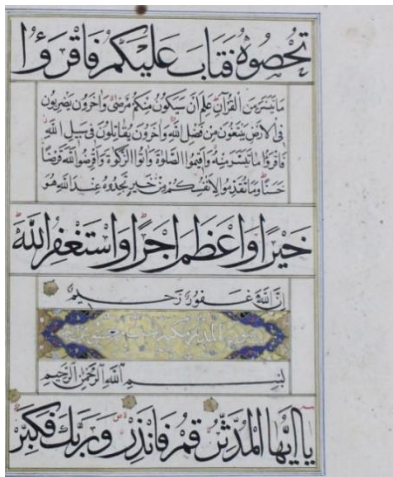 تُحْصُوهُ فَتَابَ عَلَيْكُمْ فَاقْرَؤُا
مَا تَيَسَّرَ مِنَ الْقُرْآنِ عَلِمَ اَنْ سَيَكُونُ مِنْكُمْ مَرْضٰى وَاٰخَرُونَ يَضْرِبُونَ
فِى الْاَرْضِ يَبْتَغُونَ مِنْ فَضْلِ اللّٰهِ وَاٰخَرُونَ يُقَاتِلُونَ فِى سَبِيلِ اللّٰهِ
فَاقْرَؤُا مَا تَيَسَّرَ مِنْهُ وَاَقِيمُوا الصَّلٰوةَ وَاٰتُوا الزَّكٰوةَ وَاَقْرِضُوا اللّٰهَ قَرْضًا
حَسَنًا وَمَا تُقَدِّمُوا لِاَنْفُسِكُمْ مِنْ خَيْرٍ تَجِدُوهُ عِنْدَ اللّٰهِ هُوَ
خَيْرًا وَاَعْظَمَ اَجْرًا وَاسْتَغْفِرُ اللّٰهَ
اِنَّ اللّٰهَ غَفُورٌ رَحِيمٌ
بِسْمِ اللّٰهِ الرَّحْمٰنِ الرَّحِيمِ
يَا اَيُّهَا الْمُدَّثِّرُ قُمْ فَاَنْذِرْ وَرَبَّكَ فَكَبِّرْ